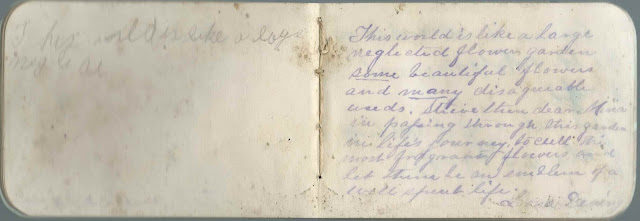 This world is like a large
neglect
This world is like a large
neglected flower garden
some beautiful flowers
and many disagreeable
weeds. Strive then dear Mina
in passing through this garden
in life's journey, to cull the
most fragrant flowers and
let them be an emblem of a
well spent life.